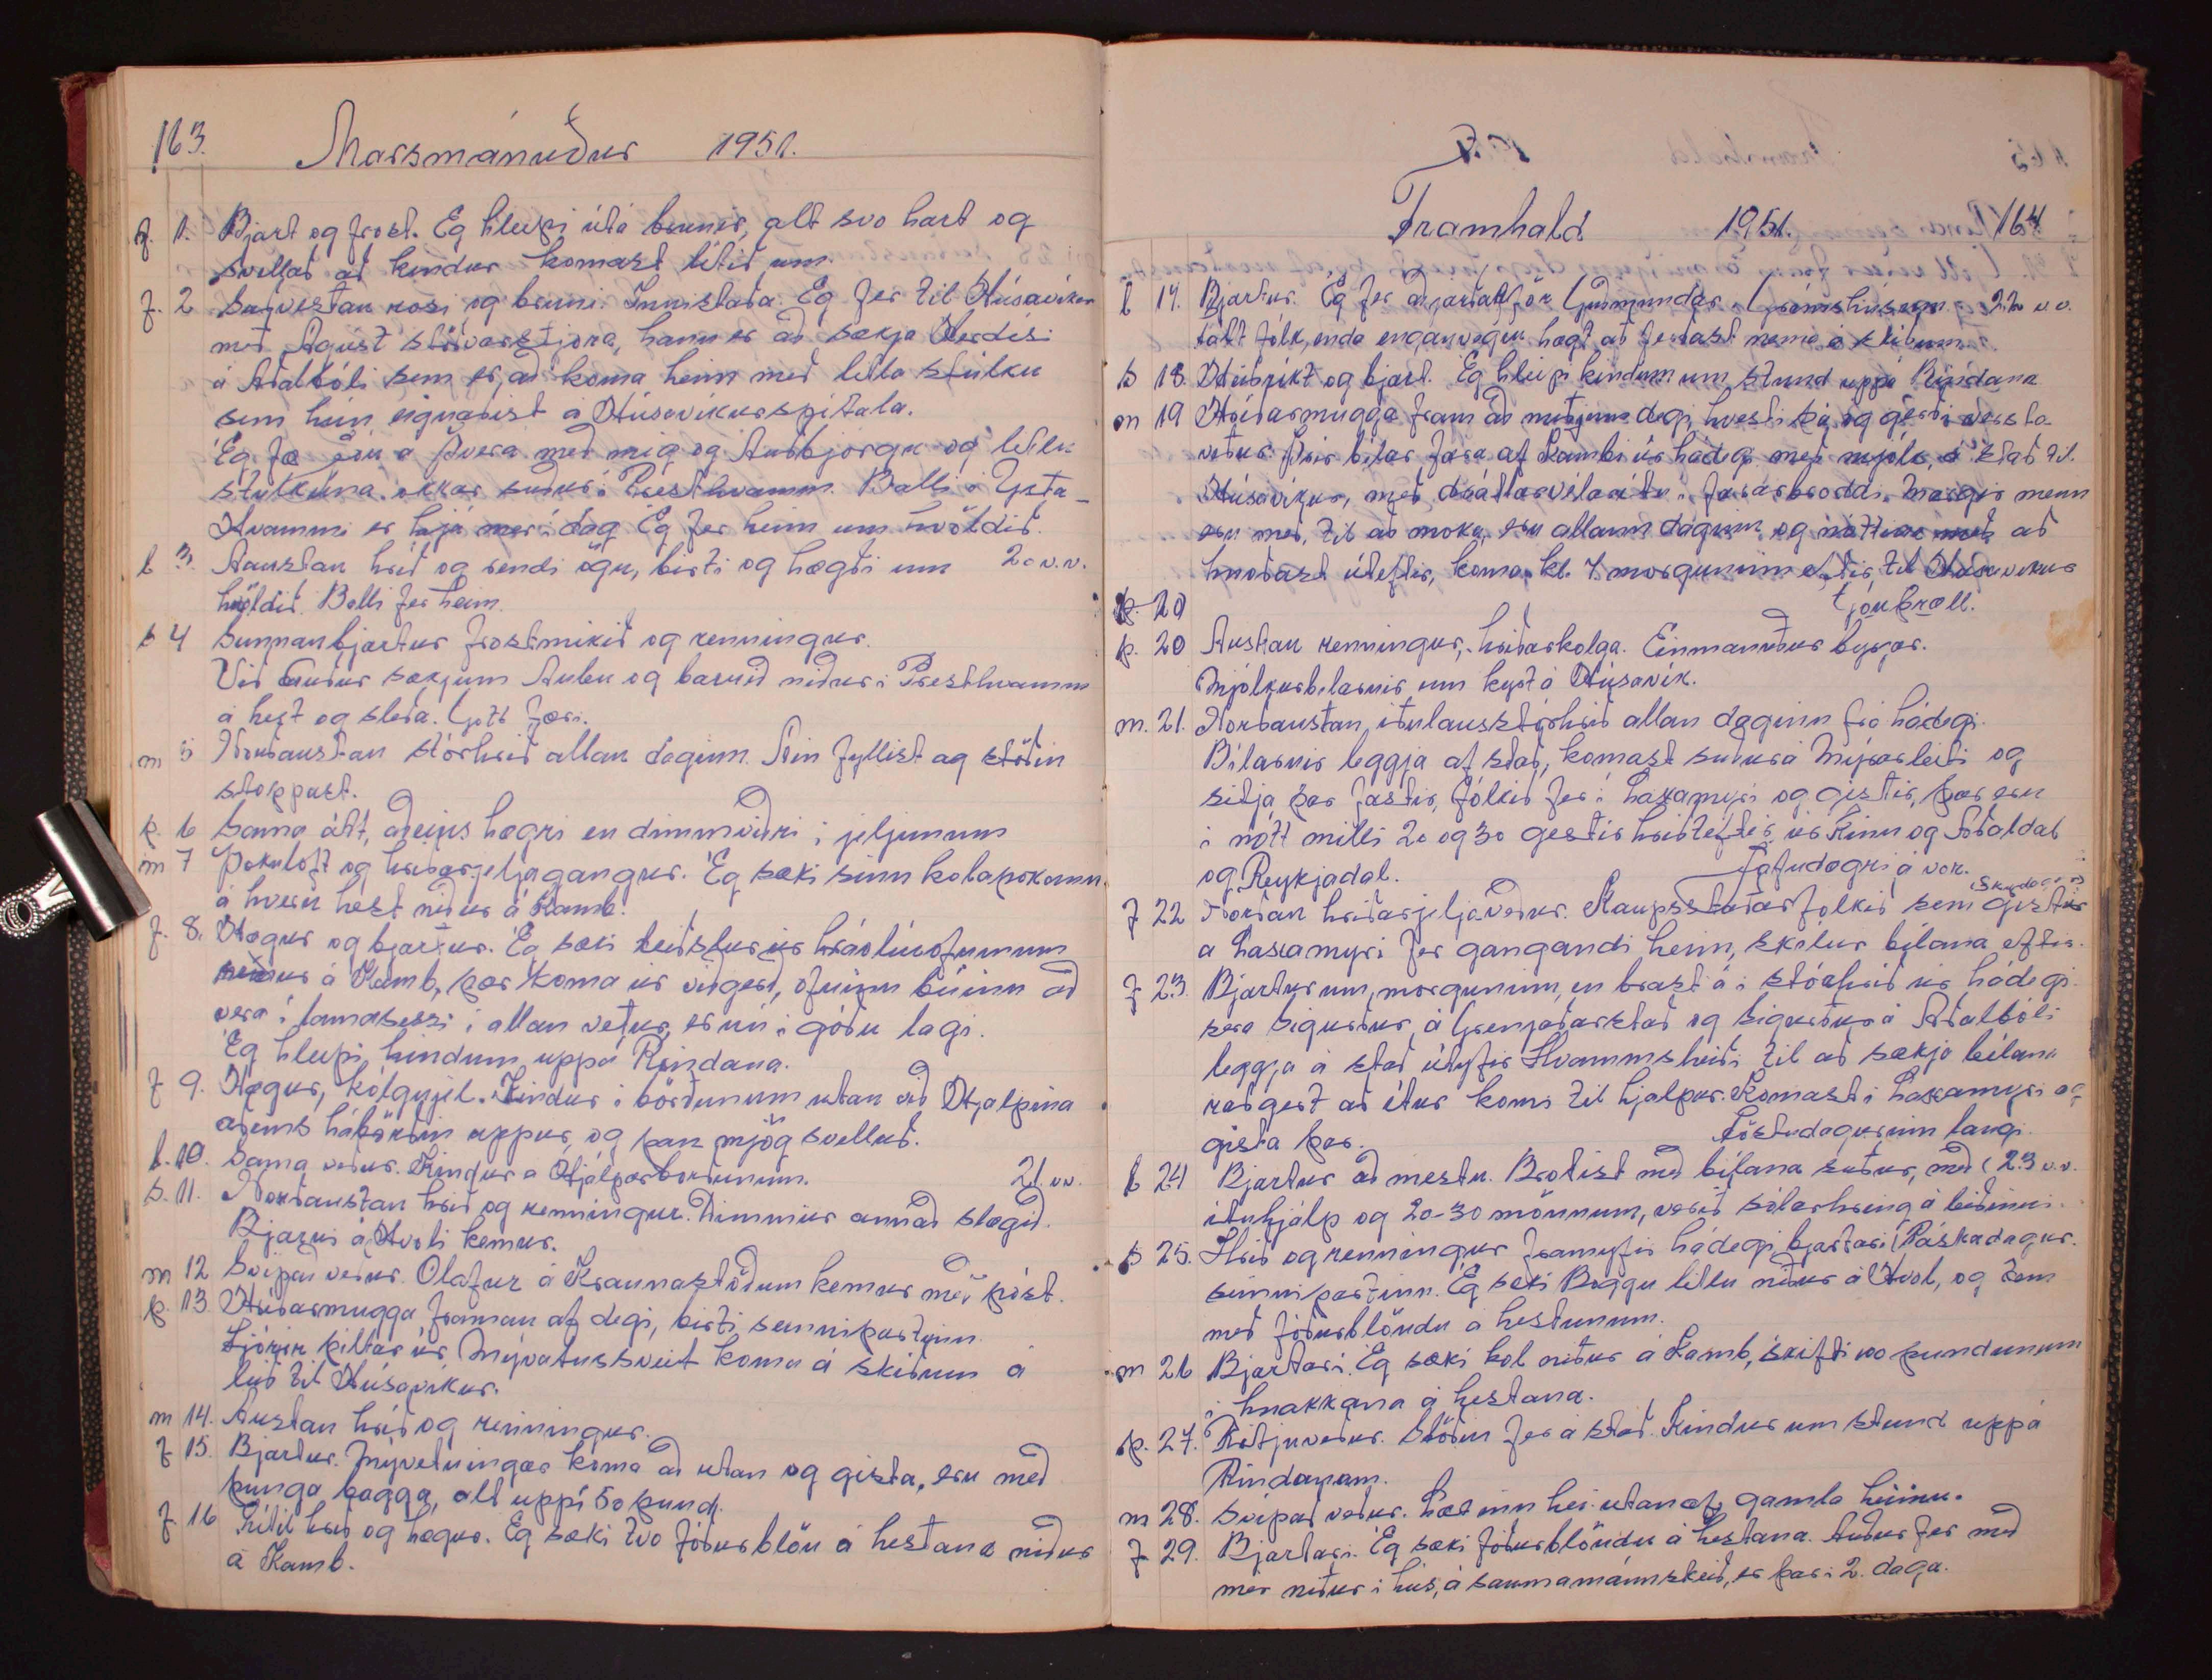 163. Marsmánuður 1951.
f. 1. Bjart og frost. Ég hleypi útá brunir, alt svo hart og
svellað að kindur komast lítið um.
f. 2 Suðvestan rosi og bruni. Innistaða. Ég fer til Húsavíkur
með Águst stöðvarstjora, hann er að sækja Herdísi
á Aðalbóli sem er að koma heim með litla stúlku
sem hún eignaðist á Húsavíkurspítala.
Ég fæ á Þverá með mig og Auðbjörgu og litlu
stulkuna okkar suður í Presthvamm. Balli á Ysta-
Hvammi er hjá mér í dag. Ég fer heim um kvöldið.
l 3. Austan hríð og rendi ögn, birti og hægði um 20 v.v.
kvöldið. Balli fer heim.
s 4 Sunnan bjartur frostmikið og renningur.
Við Auður sækjum Auðbu og barnið niður í Presthvamm
á hest og sleða. Gott færi.
m 5 Norðaustan stórhríð allan daginn. Áin fyllist og stöðin
stoppast.
þ. 6 Sama átt, aðeins hægri en dimmviðri í jeljunum
m 7 Þokuloft og hríðarjeljagangur. Ég sæki sinn kolapokann
á hvern hest niður á Kamb.
f. 8. Hægur og bjartur. Ég sæki leiðslur úr hráolíuofnunum
niður á Kamb, þær koma úr viðgerð, ofninn búinn að
vera í lamasessi í allan vetur, er nú í góðu lagi.
Ég hleypi kindum uppá Rindana.
f 9. Hægur, kólgujel. Kindur í börðunum utan við Hjalpina
aðeins hábörðin uppúr, og þau mjög svelluð.
l. 10. Sama veður. Kindur á Hjálparbörðunum. 21. vv.
s. 11. Norðaustan hríð og renningur. Dimmur annað slagið.
Bjarni á Hvoli kemur.
m 12 Svipað veður. Olafur á Hraunastöðum kemur með póst.
þ. 13. Hríðarmugga framan af degi, birti seinnipartinn.
Fjórir piltar úr Mývatnssveit koma á skiðum á
leið til Húsavíkur.
m 14. Austan hríð og renningur.
f 15. Bjartur. Mývetningar koma að utan og gista, eru með
þunga bagga, alt uppí 50 pund.
f 16 Litil hríð og hægur. Ég sæki tvo fóðurblön á hestana niður
á Kamb.
Framhald 1951. 164
l 17. Bjartur. Ég fer að jarðarför Guðmundar í Grímshúsum. 22 v v.
fátt fólk, enda enganveginn hægt að ferðast nema á skíðum.
s 18. Heiðríkt og bjart. Ég hleypi kindum um stund uppá Rindana
m 19 Hríðarmugga fram að miðjum degi, hvesti þá og gerði versta
veður. Þrír bílar fara af Kambi úr hádegi með mjólk, á stað til
Húsavíkur, með dráttarvél og ítu í fararbroddi. Margir menn
eru með, til að moka, eru allann daginn og nóttina með að
hnoðast úteftir, koma kl. 7 morguninn eftir, til Húsavíkur
þ. 20 Góuþræll.
þ. 20 Austan renningur, hríðarkolga. Einmanuður byrjar.
Mjólkurbílarnir um kyrt á Húsavík.
m. 21. Norðaustan, iðulaus stórhríð allan daginn frá hádegi.
Bílarnir leggja af stað, komast suðurá Mýrarleiti og
sitja þar fastir, fólkið fer í Laxamýri og gistir, þar eru
í nótt milli 20 og 30 gestir hríðteptir, úr Kinn og Aðaldal
og Reykjadal. Jafndægri á vor.
f 22 Norðan hríðarjeljaveður. Kaupsstaðarfolkið sem gistir Skírdagur
á Laxamýri fer gangandi heim, skilur bílana eftir.
f 23. Bjartur um morguninn, en brast á í stórhríð úr hádegi.
þeir Sigurður á Grenjaðarstað og Sigurður á Aðalbóli
leggja á stað útyfir Hvammsheiði til að sækja bílana
ráðgert að ítur komi til hjálpar. Komast í Laxamýri og
gista þar. Föstudagurinn langi.
l 24 Bjartur að mestu. Brotist með bílana suður, með (23 v.v.
ítuhjálp og 20-30 mönnum, verið sólarhring á leiðinni.
s 25. Hríð og renningur framyfir hádegi, bjartari (Páskadagur.
seinnipartinn. Ég sæki Boggu litlu niður á Hvol, og kem
með fóðurblöndu á hestunum.
m 26 Bjartari. Ég sæki kol niður á Kamb, skifti 100 pundunum
í hnakkana á hestana.
þ. 27. Rótjuveður. Stöðin fer á stað. Kindur um stund uppá
Rindanum.
m 28. Svipað veður. Læt inn hei utanaf gamla heiinu.
f 29. Bjartari. Ég sæki fóðurblöndu á hestana. Auður fer með
mér niður í hús, á saumanámskeið, er þar í 2. daga.